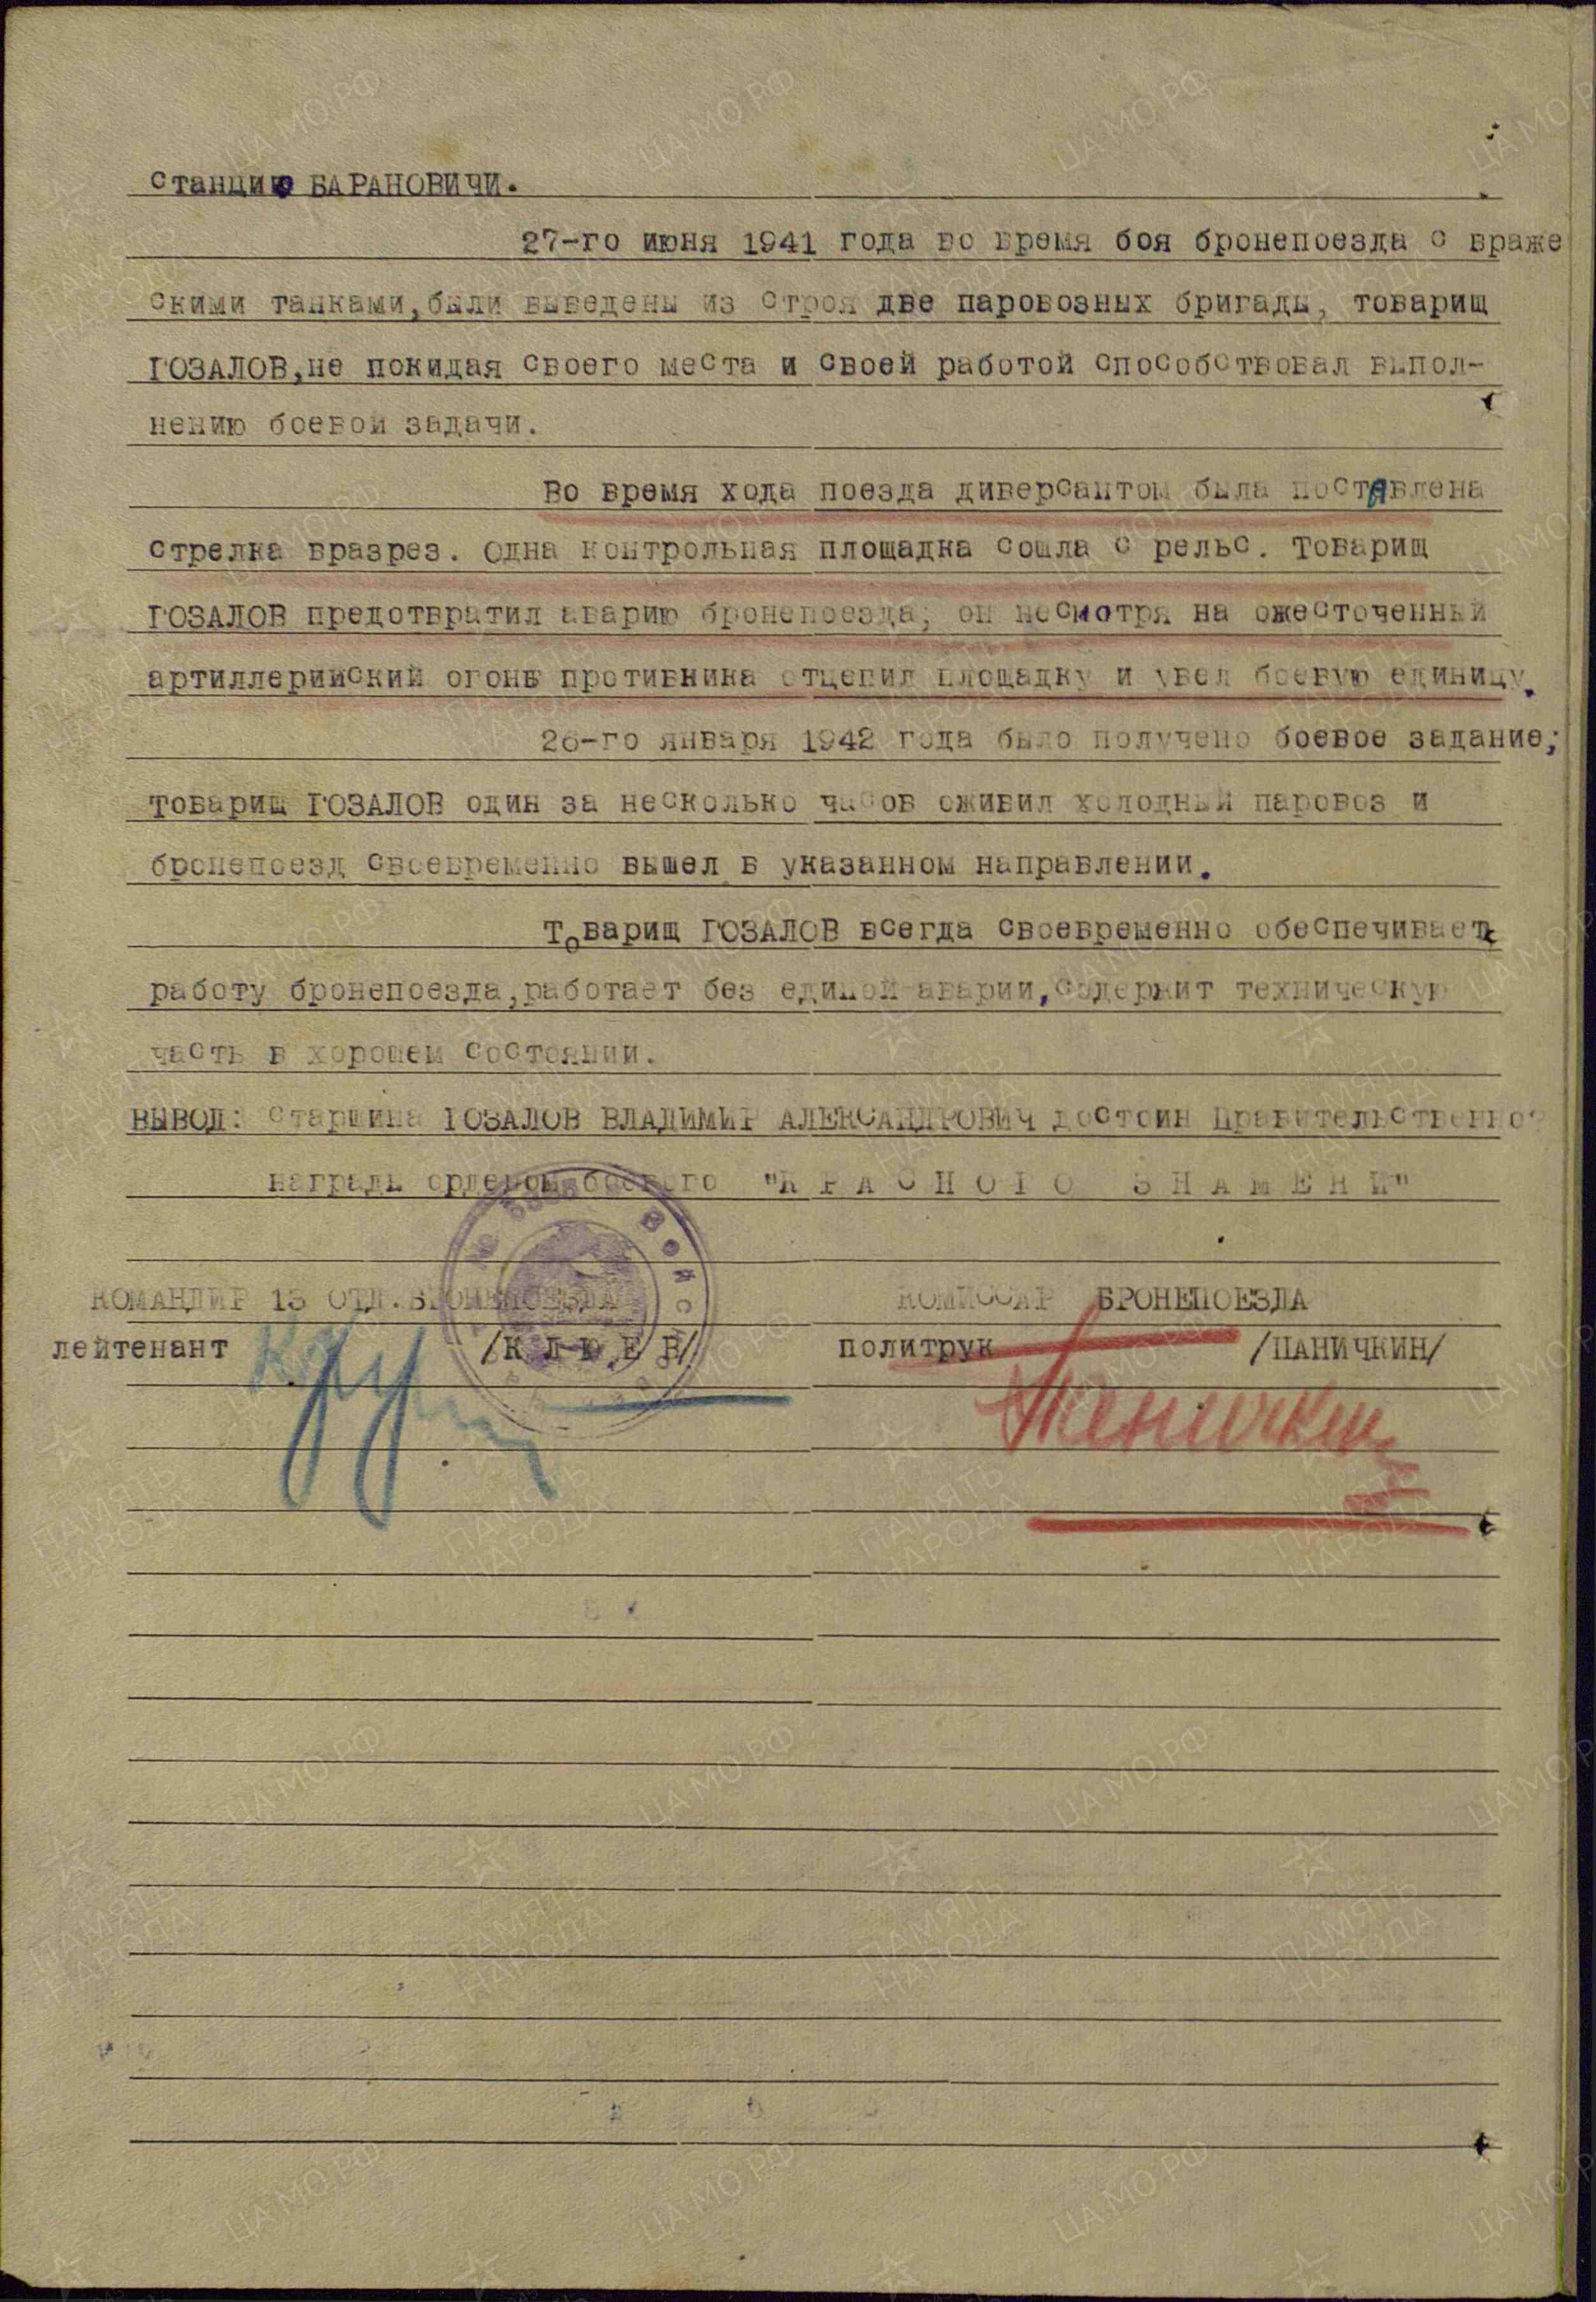 станцию БАРАНОВИЧИ.
27-го июня 1941 года во время боя бронепоезда с враже
скими танками, были выведены из строя две паровозных бригады, товарищ
ГОЗАЛОВ, не покидая своего места и своей работой способствовал выпол-
нению боевой задачи.
Во время хода поезда диверсантом была поставлена
стрелка вразрез. Одна контрольная площадка сошла с рельс. Товарищ
ГОЗАЛОВ предотвратил аварию бронепоезда; он несмотря на ожесточенный
артиллерийский огонь противника отцепил площадку и увел боевую единицу.
26-го января 1942 года было получено боевое задание;
товарищ ГОЗАЛОВ один за несколько часов оживил холодный паровоз и
бронепоезд своевременно вышел в указанном направлении.
Товарищ ГОЗАЛОВ всегда своевременно обеспечивает
работу бронепоезда, работает без единой аварии, содержит техническую
часть в хорошем состоянии.
ВЫВОД: Старшина ГОЗАЛОВ ВЛАДИМИР АЛЕКСАНДРОВИЧ достоин Правительственной
награды орденом боевого "КРАСНОГО ЗНАМЕНИ"
КОМАНДИР 13 ОТД. БРОНЕПОЕЗДА КОМИССАР БРОНЕПОЕЗДА
лейтенант /КЛЮЕВ/ политрук /ПАНИЧКИН/
Паничкин
ЦАМО.РФ
ПАМЯТЬ
НАРОДА